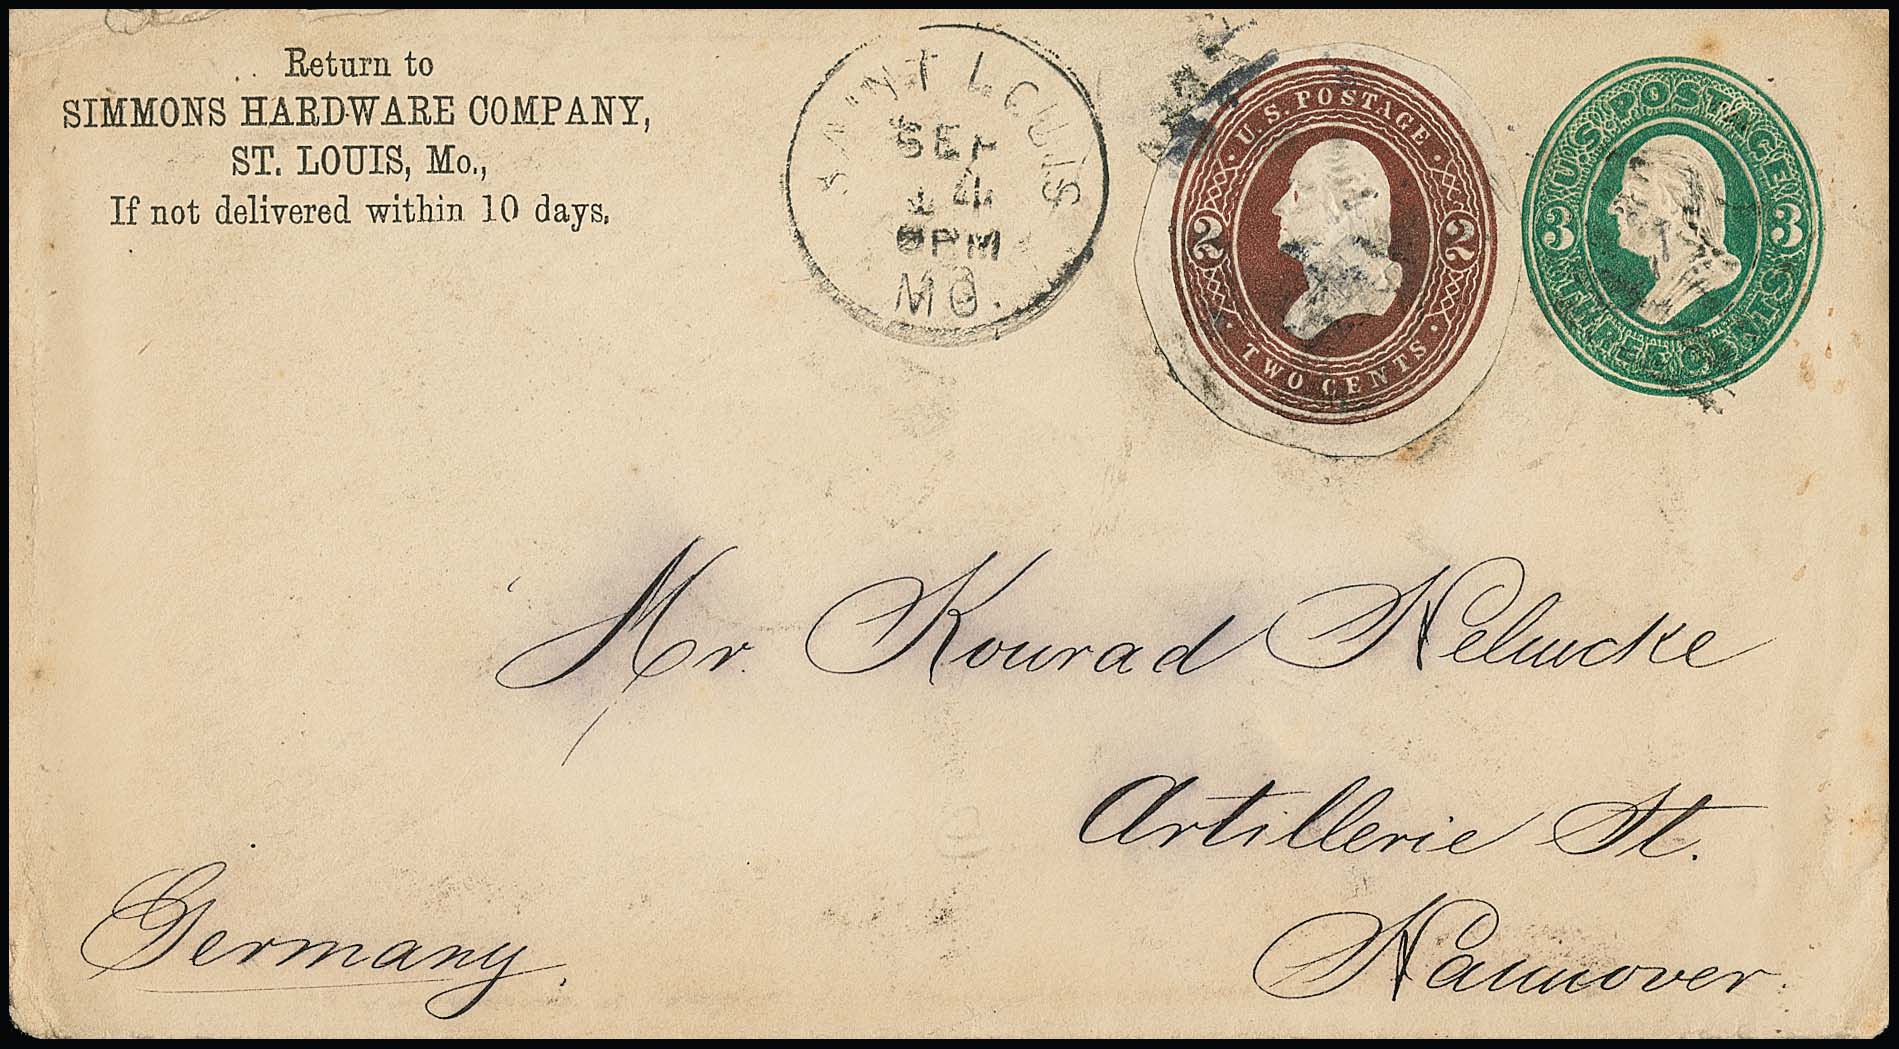 Return to
SIMMONS HARDWARE COMPANY,
ST. LOUIS, Mo.,
If not delivered within 10 days.
SAINT LOUIS
SEP
4
PM
MO.
U.S. POSTAGE
2 2
TWO CENTS
U.S. POSTAGE
3 3
THREE CENTS
Mr. Konrad
Artillerie St.
Hannover.
Germany.